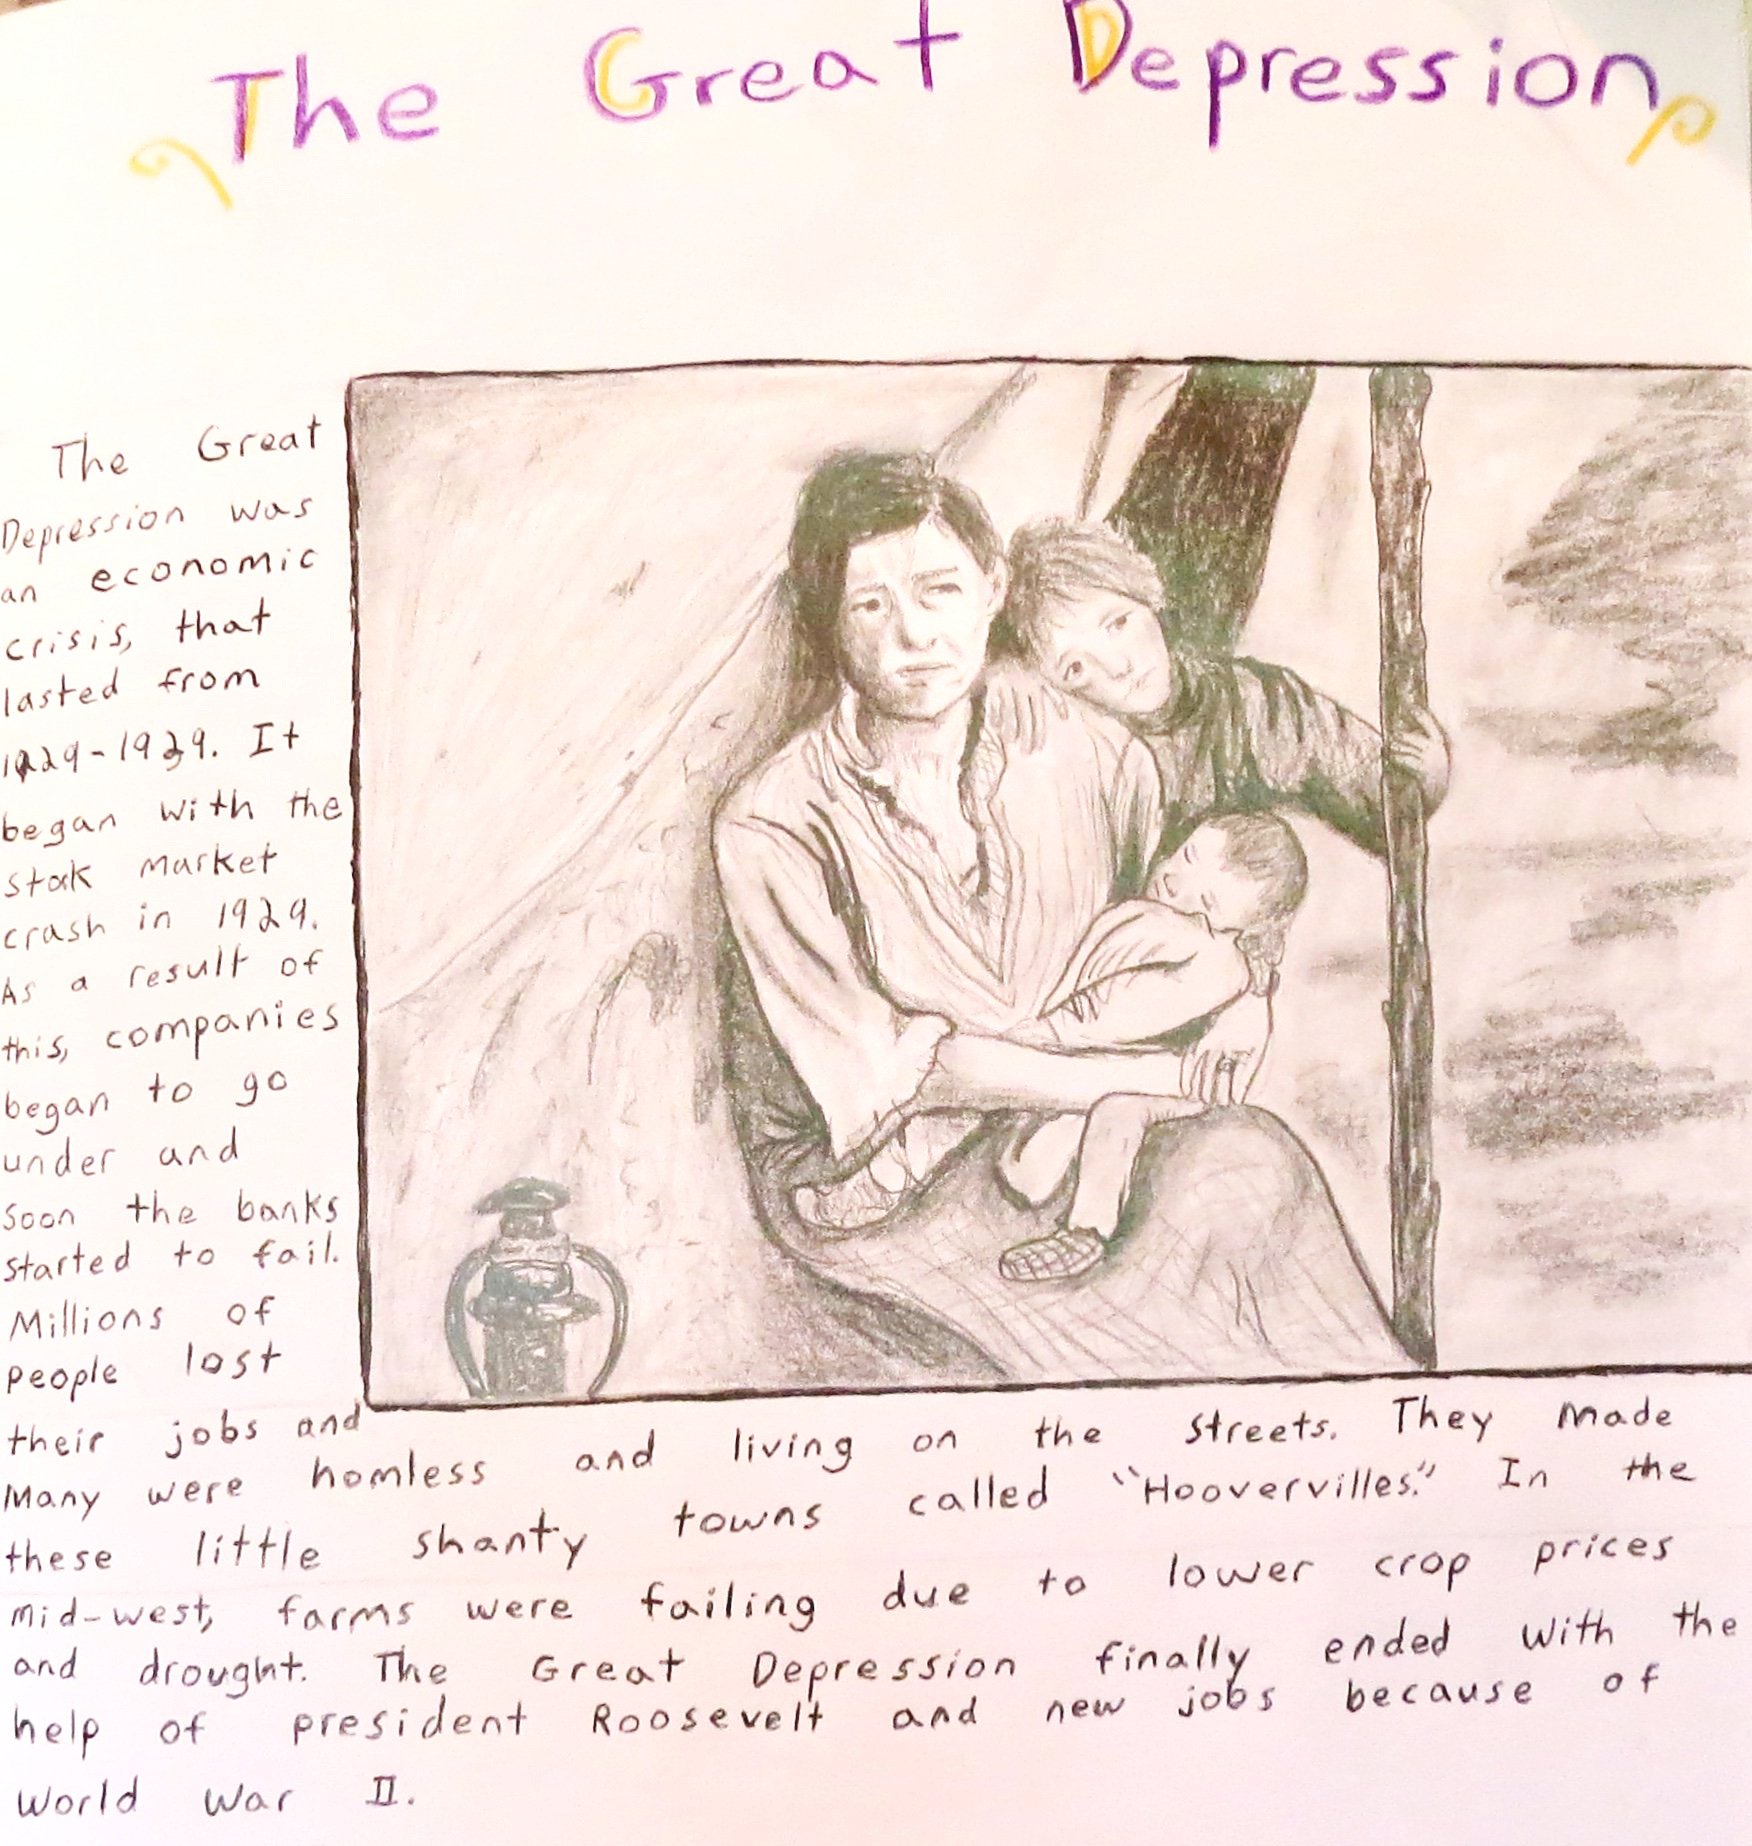 The Great Depression
The Great
Depression was
an economic
crisis, that
lasted from
1929-1939. It
began with the
stock market
crash in 1929.
As a result of
this, companies
began to go
under and
soon the banks
started to fail.
Millions of
people lost
their jobs and
many were homless and living on the streets. They made
these little shanty towns called "Hoovervilles." In the
mid-west, farms were failing due to lower crop prices
and drought. The Great Depression finally ended with the
help of president Roosevelt and new jobs because of
World War II.